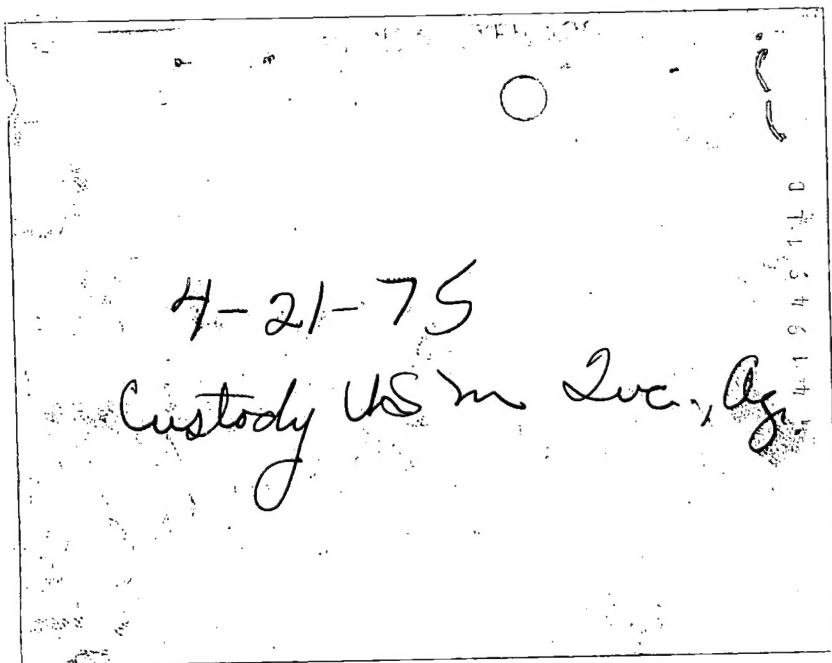 4-21-75
Custody USM Tuc., Az.